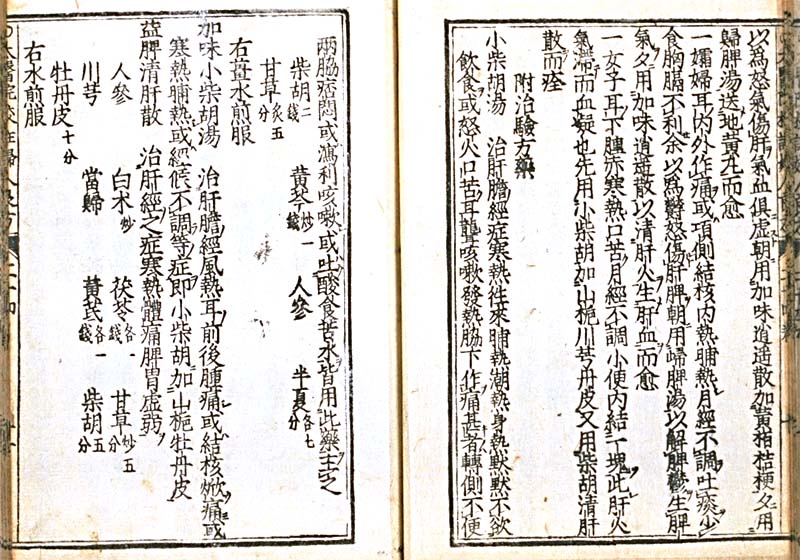 以為怒氣傷肝氣血俱虛朝用加味逍遥散加黄栢桔梗夕用
歸脾湯送地黄丸而愈
一孀婦耳內外作痛或項側結核內熱晡熱月經不調吐痰少
食胸膈不利余以為鬱怒傷肝脾朝用歸脾湯以解脾鬱生脾
氣夕用加味逍遥散以清肝火生肝血而愈
一女子耳下腫赤寒熱口苦月經不調小便內結一塊此肝火
氣滯而血凝也先用小柴胡加山梔川芎丹皮又用柴胡清肝
散而痊
附治驗方藥
小柴胡湯 治肝膽經症寒熱徃來晡熱潮熱身熱默默不欲
飲食或怒火口苦耳聾咳嗽發熱脇下作痛甚者轉側不便
兩脇痞悶或瀉利咳嗽或吐酸食苦水皆用此藥主之
柴胡二錢 黄芩炒一錢 人參 半夏各七分
甘草炙五分
右薑水煎服
加味小柴胡湯 治肝膽經風熱耳前後腫痛或結核焮痛或
寒熱晡熱或經候不調等症即小柴胡加山梔牡丹皮
益脾清肝散 治肝經之症寒熱體痛脾胃虛弱
人參 白朮炒 茯苓各一錢 甘草炒五分
川芎 當歸 黄芪各一錢 柴胡五分
牡丹皮十分
右水煎服